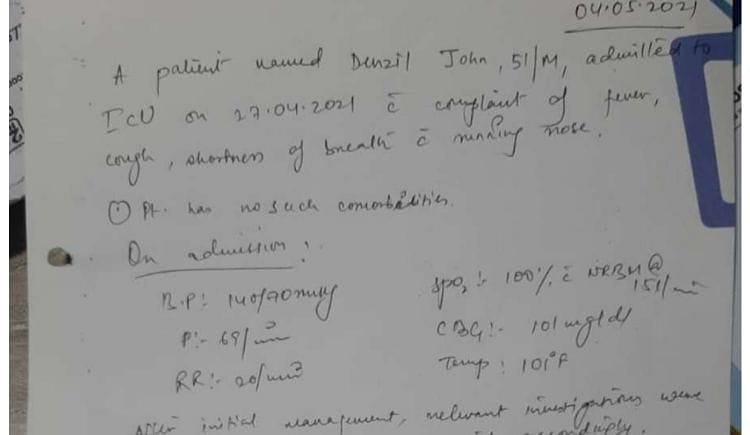 04.05.2021
A patient named Denzil John, 51/M, admitted to
ICU on 27.04.2021 c̄ complaint of fever,
cough, shortness of breath c̄ running nose.
Pt. has no such comorbidities.
On admission:
B.P: 140/90 mmHg
SpO2:- 100% c̄ NRBM @ 15l/min
P:- 69/min
CBG:- 101 mg/dl
RR:- 20/min
Temp: 101°F
After initial management, relevant investigations were
accordingly.